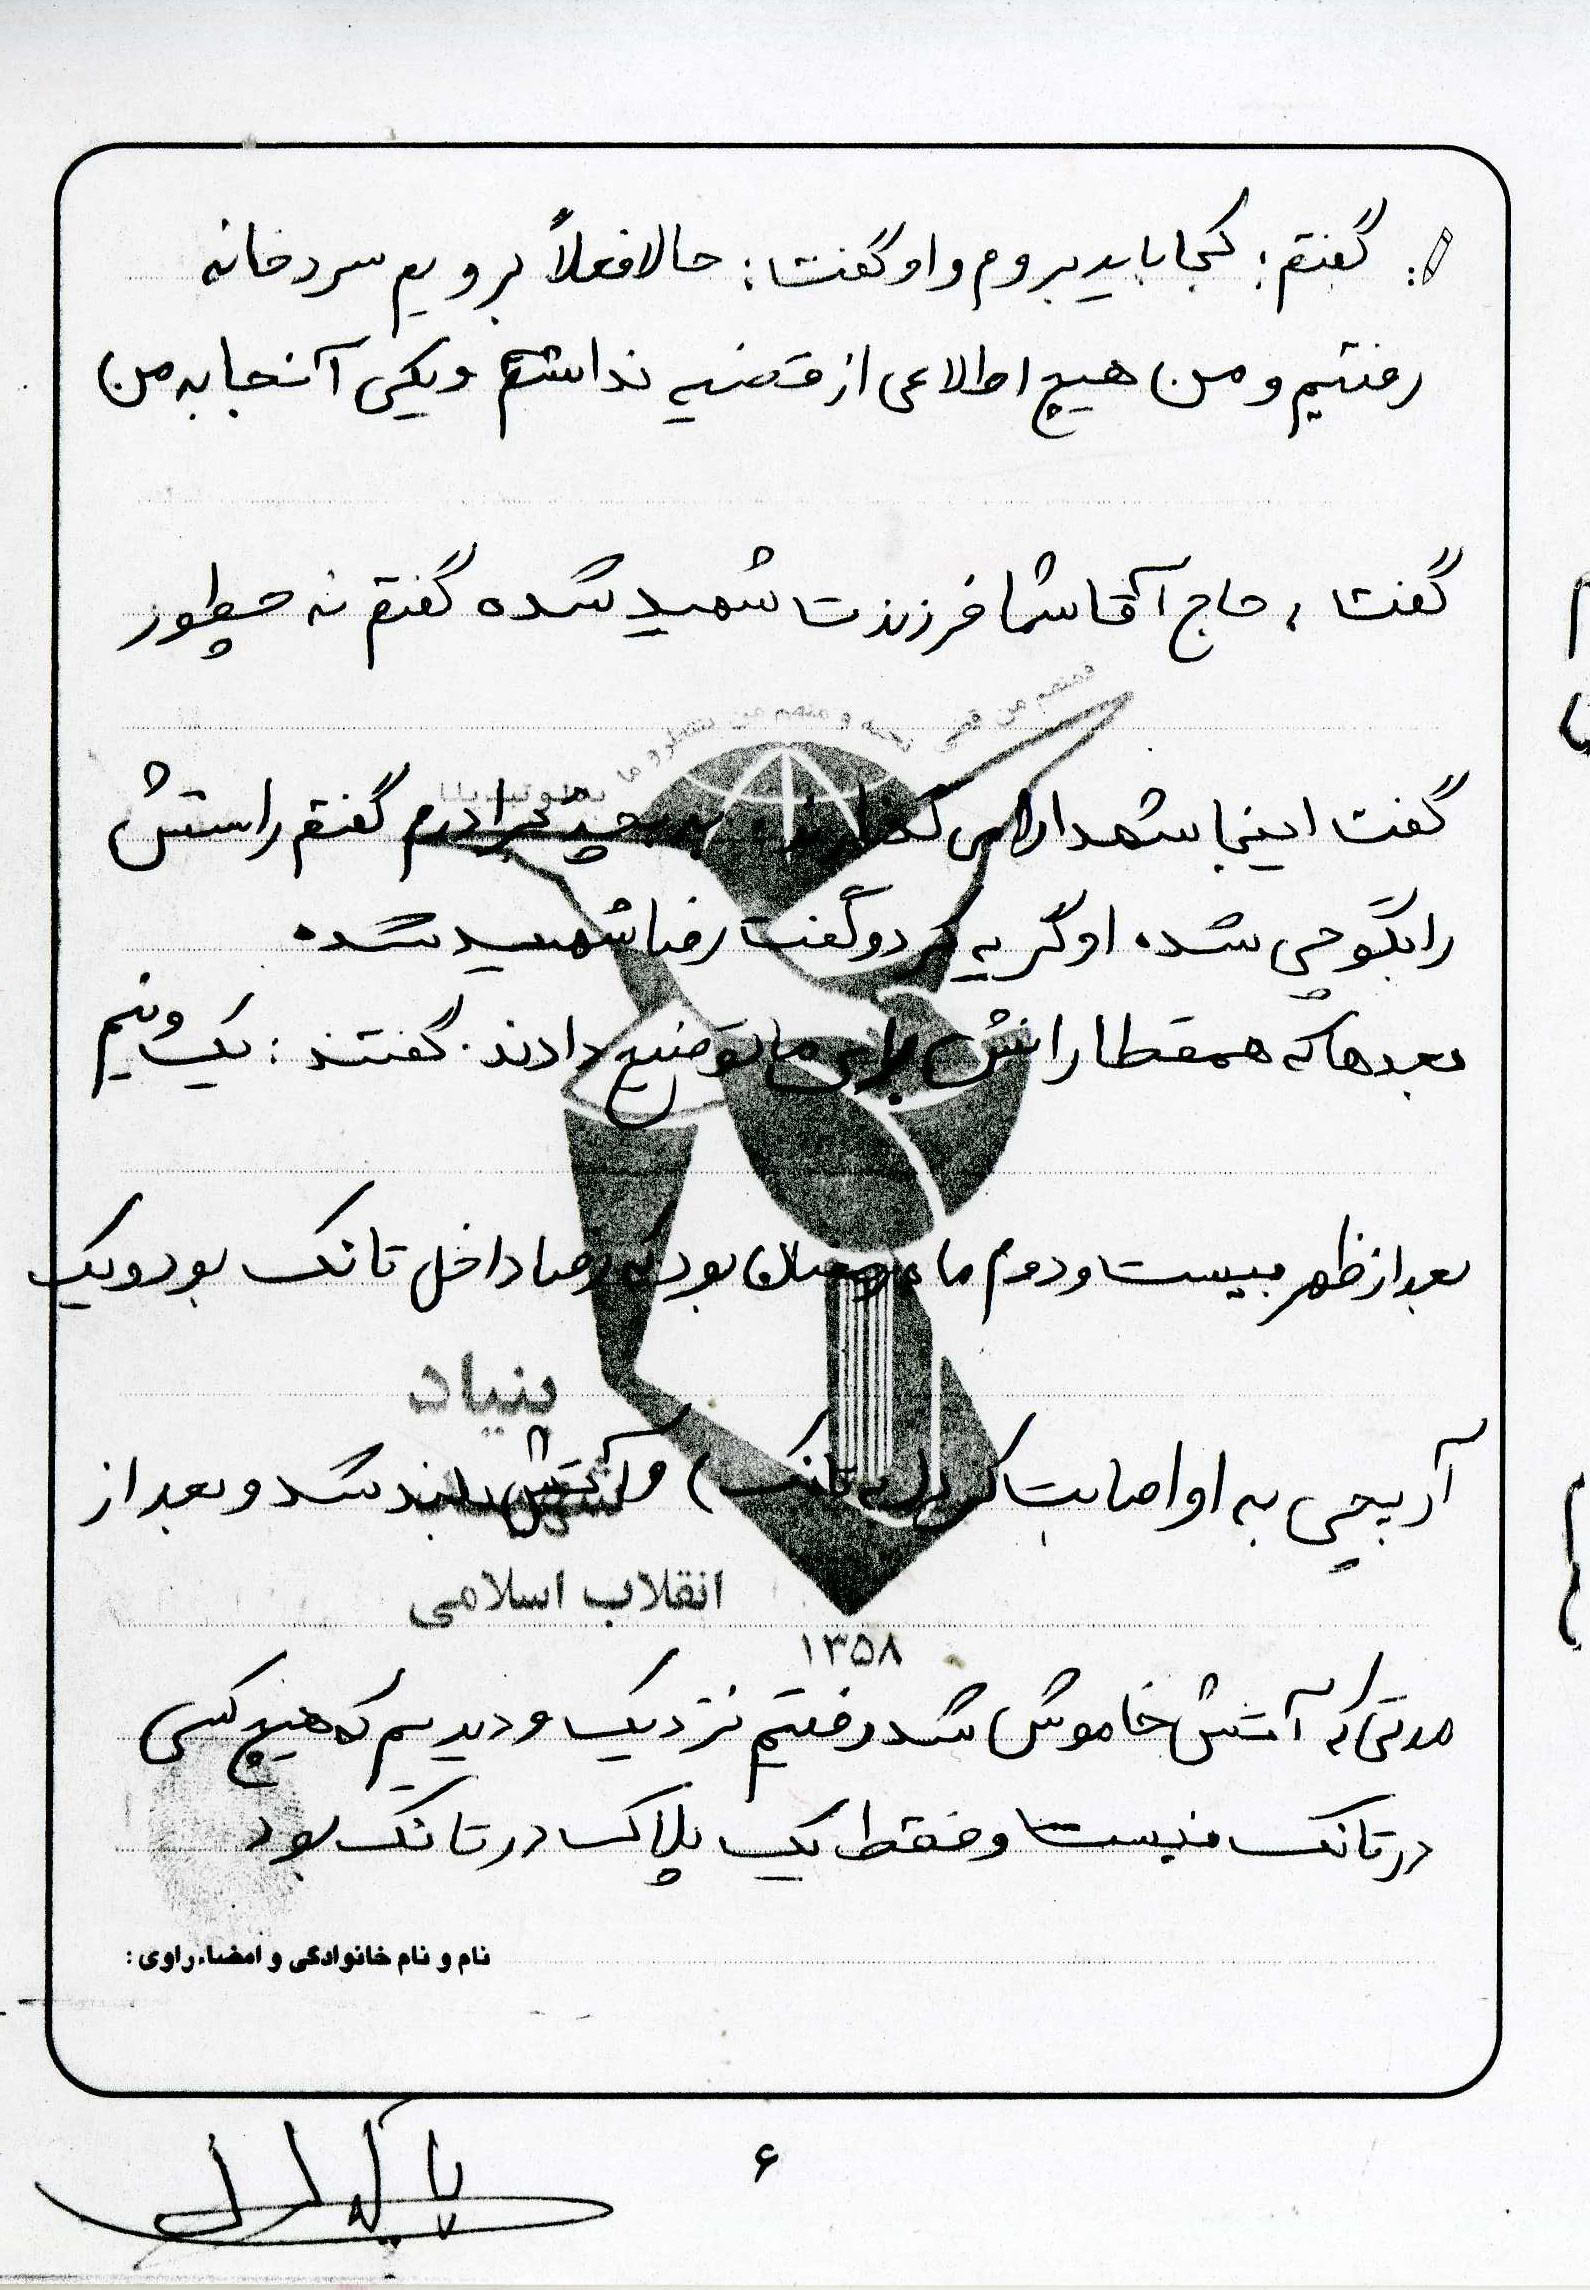 گفتم: کجا باید بروم و او گفت: حالا فعلاً برویم سردخانه
رفتیم و من هیچ اطلاعی از قضیه نداشتم و یکی آنجا به من
گفت، حاج آقا شما فرزندت شهید شده گفتم نه چطور
گفت اینجا شهدا را می گذارند چرا درم گفتم راستش
را بگو چی شده او گریه کرد و گفت رضا شهید شده
بعدها که همقطارانش برای ما توضیح دادند. گفتند: یک و نیم
بعد از ظهر بیست و دوم ماه رمضان بود که رضا داخل تانک بود و یک
آرپیجی به او اصابت کرد (به تانک) و آتش بلند شد و بعد از
مدتی که آتش خاموش شد رفتیم نزدیک و دیدیم که هیچ کسی
در تانک نیست و فقط یک پلاک در تانک بود
بنیاد
شهید
انقلاب اسلامی
۱۳۵۸
نام و نام خانوادگی و امضاء راوی:
۶